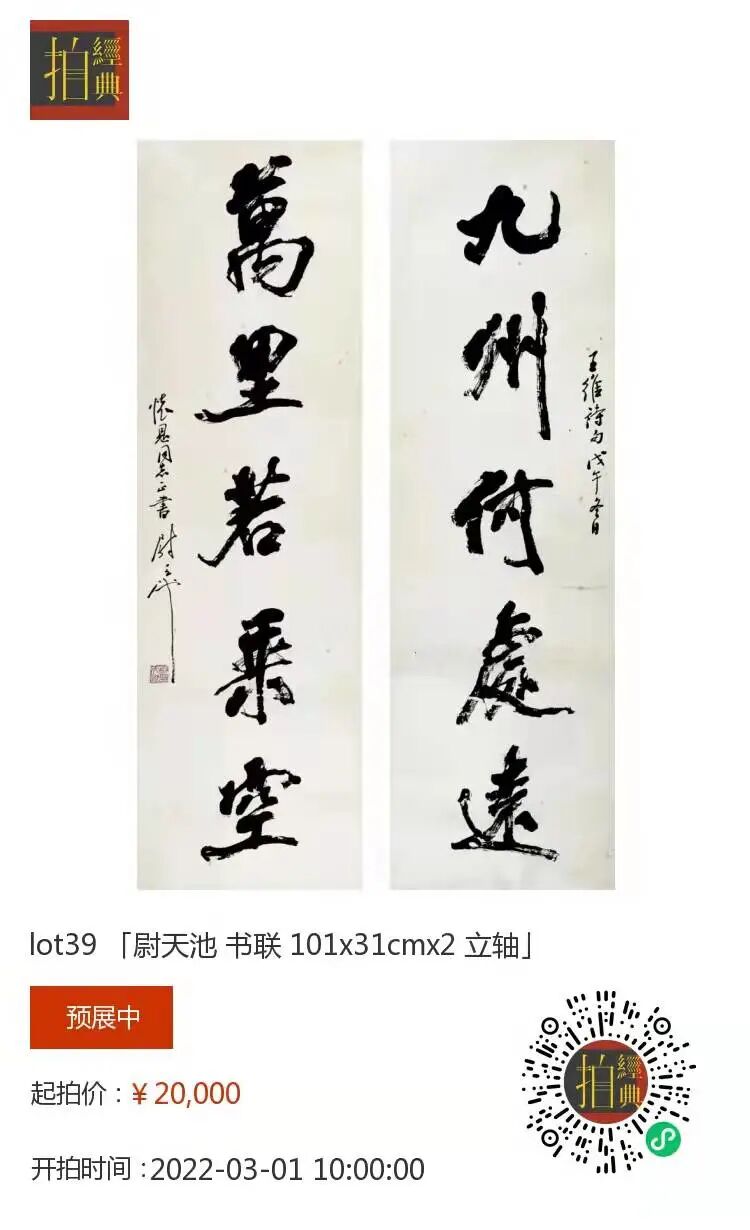 拍
經典
九州何處遠
王維詩句戊午冬日
萬里若乘空
懷恩同志正書 尉天池
lot39 「尉天池 书联 101x31cmx2 立轴」
预展中
起拍价：¥ 20,000
拍
經典
开拍时间 :2022-03-01 10:00:00